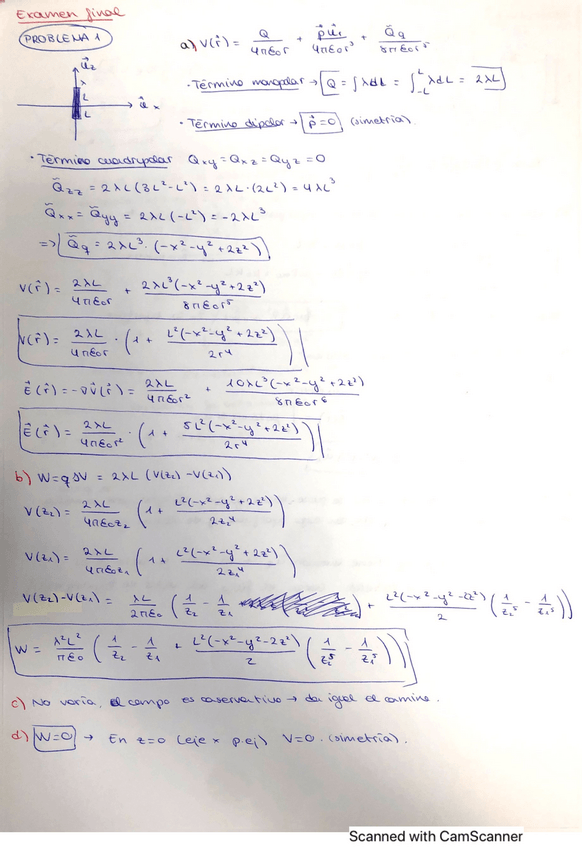 Examen final
PROBLEMA 1
a) V(r̂) = Q/4πε₀r + p⃗·û_r/4πε₀r³ + Q̃q/8πε₀r⁵
û_z
λ
L
û_x
L
· Término monopolar → Q = ∫λdL = ∫_{-L}^{L} λdL = 2λL
· Término dipolar → p⃗ = 0 (simetría).
· Término cuadrupolar Qxy = Qxz = Qyz = 0
Q̃zz = 2λL(3L²-L²) = 2λL·(2L²) = 4λL³
Q̃xx = Q̃yy = 2λL(-L²) = -2λL³
=> Q̃q = 2λL³·(-x²-y²+2z²)
V(r̂) = 2λL/4πε₀r + 2λL³(-x²-y²+2z²)/8πε₀r⁵
V(r̂) = 2λL/4πε₀r · (1 + L²(-x²-y²+2z²)/2r⁴)
E⃗(r̂) = -∇V(r̂) = 2λL/4πε₀r² + 10λL³(-x²-y²+2z²)/8πε₀r⁶
E⃗(r̂) = 2λL/4πε₀r² · (1 + 5L²(-x²-y²+2z²)/2r⁴)
b) W = qΔV = 2λL (V(z₂) - V(z₁))
V(z₂) = 2λL/4πε₀z₂ (1 + L²(-x²-y²+2z²)/2z₂⁴)
V(z₁) = 2λL/4πε₀z₁ (1 + L²(-x²-y²+2z²)/2z₁⁴)
V(z₂)-V(z₁) = λL/2πε₀ (1/z₂ - 1/z₁) + L²(-x²-y²-2z²)/2 (1/z₂⁵ - 1/z₁⁵)
W = λ²L²/πε₀ (1/z₂ - 1/z₁ + L²(-x²-y²-2z²)/2 (1/z₂⁵ - 1/z₁⁵))
c) No varía, el campo es conservativo → da igual el camino.
d) W=0 → En z=0 (eje x p.ej) V=0. (simetría).
Scanned with CamScanner